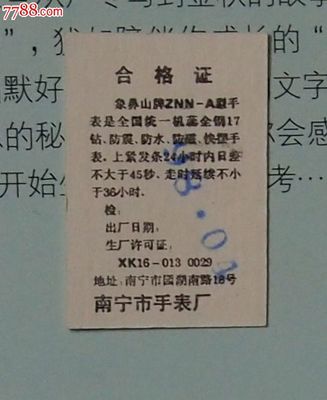 7788.com
"，犹如陪伴成长的"
合格证
象鼻山牌ZNN-A型手
表是全国统一机芯全钢17
钻、防震、防水、防磁、快摆手
表。上紧发条24小时内日差
不大于45秒。走时延续不小
于36小时。
检：
出厂日期：
生产许可证：
XK16-013 0029
地址：南宁市园湖南路18号
南宁市手表厂
默好
文字
的秘
你会感
开始
考…